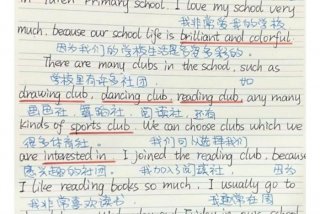 in Yaren Primary School. I love my school very
我非常喜爱我的学校
much, because our school life is brilliant and colorful.
因为我们的学校生活是丰富多彩的。
There are many clubs in the school, such as
学校里有许多社团, 如
drawing club, dancing club, reading club, any many
画画社, 舞蹈社, 阅读社, 还有
kinds of sports club. We can choose clubs which we
很多体育社。 我们可以选择我们
are interested in. I joined the reading club, because
感兴趣的社团。 我加入了阅读社, 因为
I like reading books so much. I usually go to
我非常喜欢读书